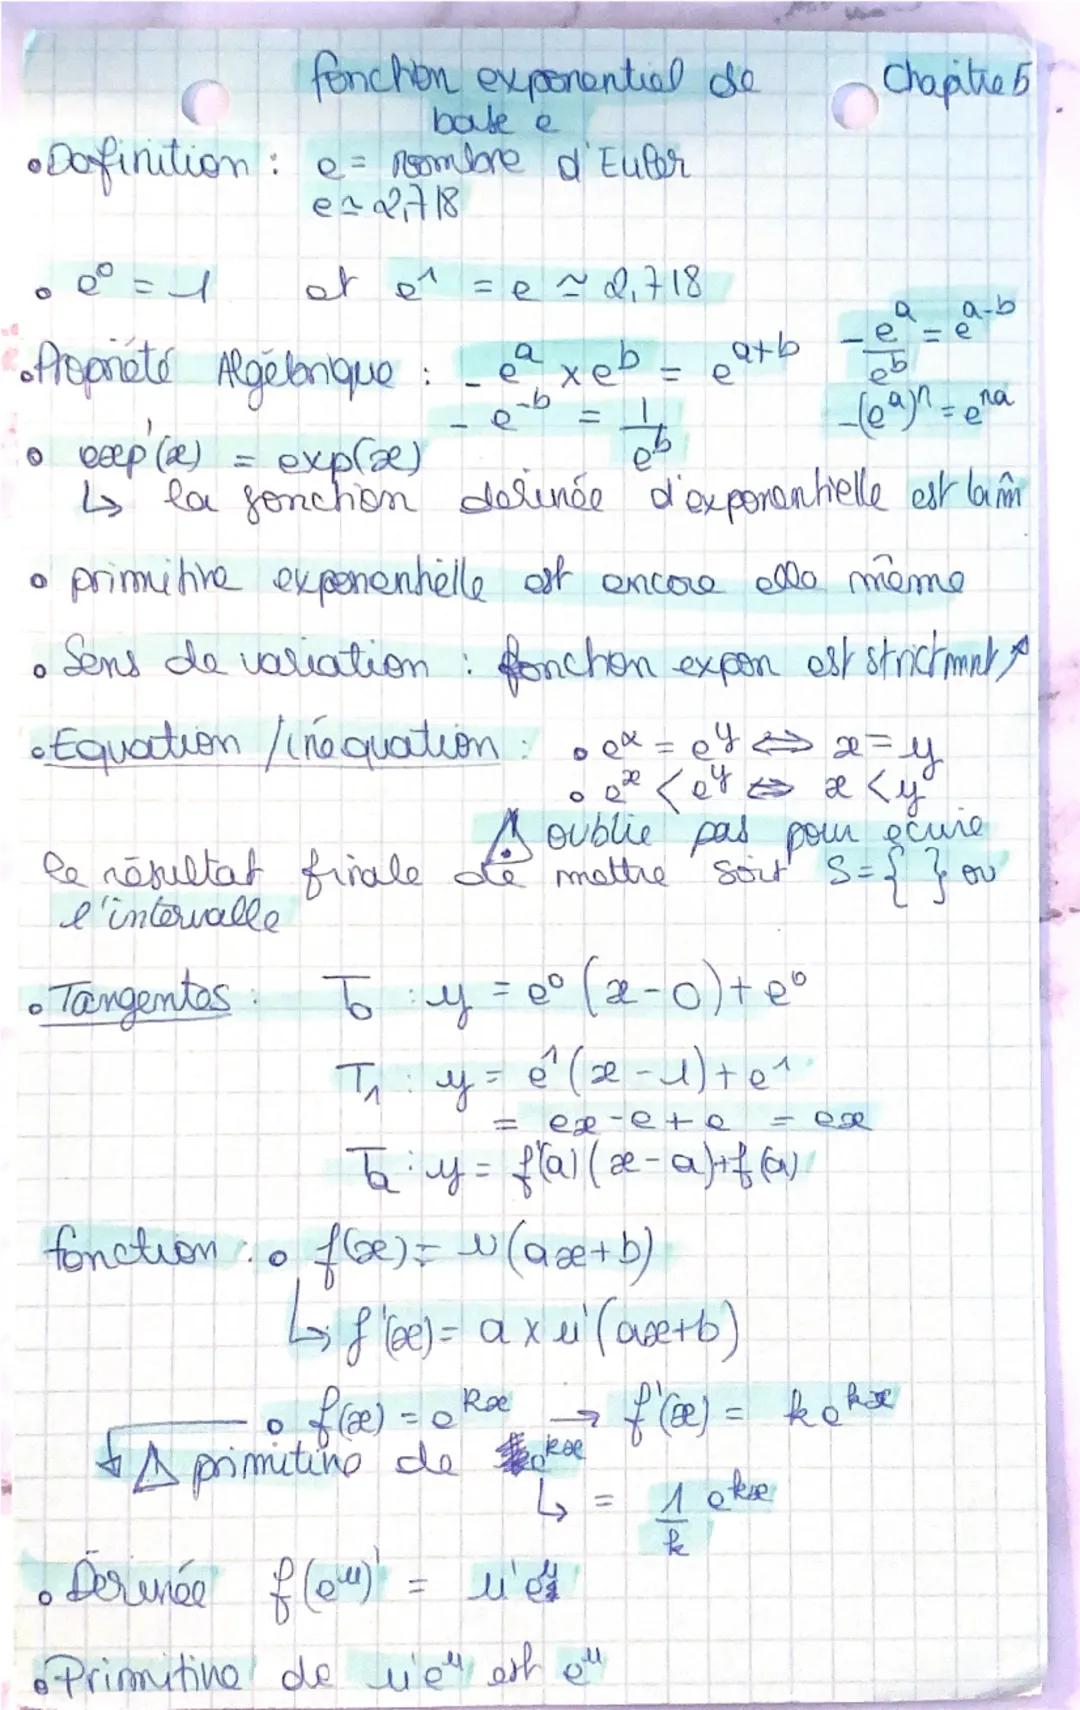 fonction exponentiel de Chapitre 5
base e
• Definition : e = nombre d'Euler
e ≃ 2,718
• e⁰ = 1 et e¹ = e ≃ 2,718
• Propriété Algébrique : - eᵃ × eᵇ = eᵃ⁺ᵇ - eᵃ/eᵇ = eᵃ⁻ᵇ
- e⁻ᵇ = 1/eᵇ - (eᵃ)ⁿ = eⁿᵃ
• exp'(x) = exp(x)
↳ la fonction derivée d'exponentielle est la m̂
• primitive exponentielle est encore elle même
• Sens de variation : fonction expon est strictmnt ↗
• Equation / inéquation : • eˣ = eʸ ⇔ x = y
• eˣ < eʸ ⇔ x < y
⚠ oublie pas pour écrire
le résultat finale de mettre soit S = { } ou
l'intervalle
• Tangentes : T₀ : y = e⁰ (x - 0) + e⁰
T₁ : y = e¹ (x - 1) + e¹
= ex - e + e = ex
Tₐ : y = f'(a) (x - a) + f(a)
fonction : • f(x) = u(ax+b)
↳ f'(x) = a × u'(ax+b)
• f(x) = eᵏˣ → f'(x) = k eᵏˣ
↳ ⚠ primitive de eᵏˣ
↳ = 1/k eᵏˣ
• Derivée f(eᵘ)' = u'eᵘ
• Primitive de u'eᵘ est eᵘ